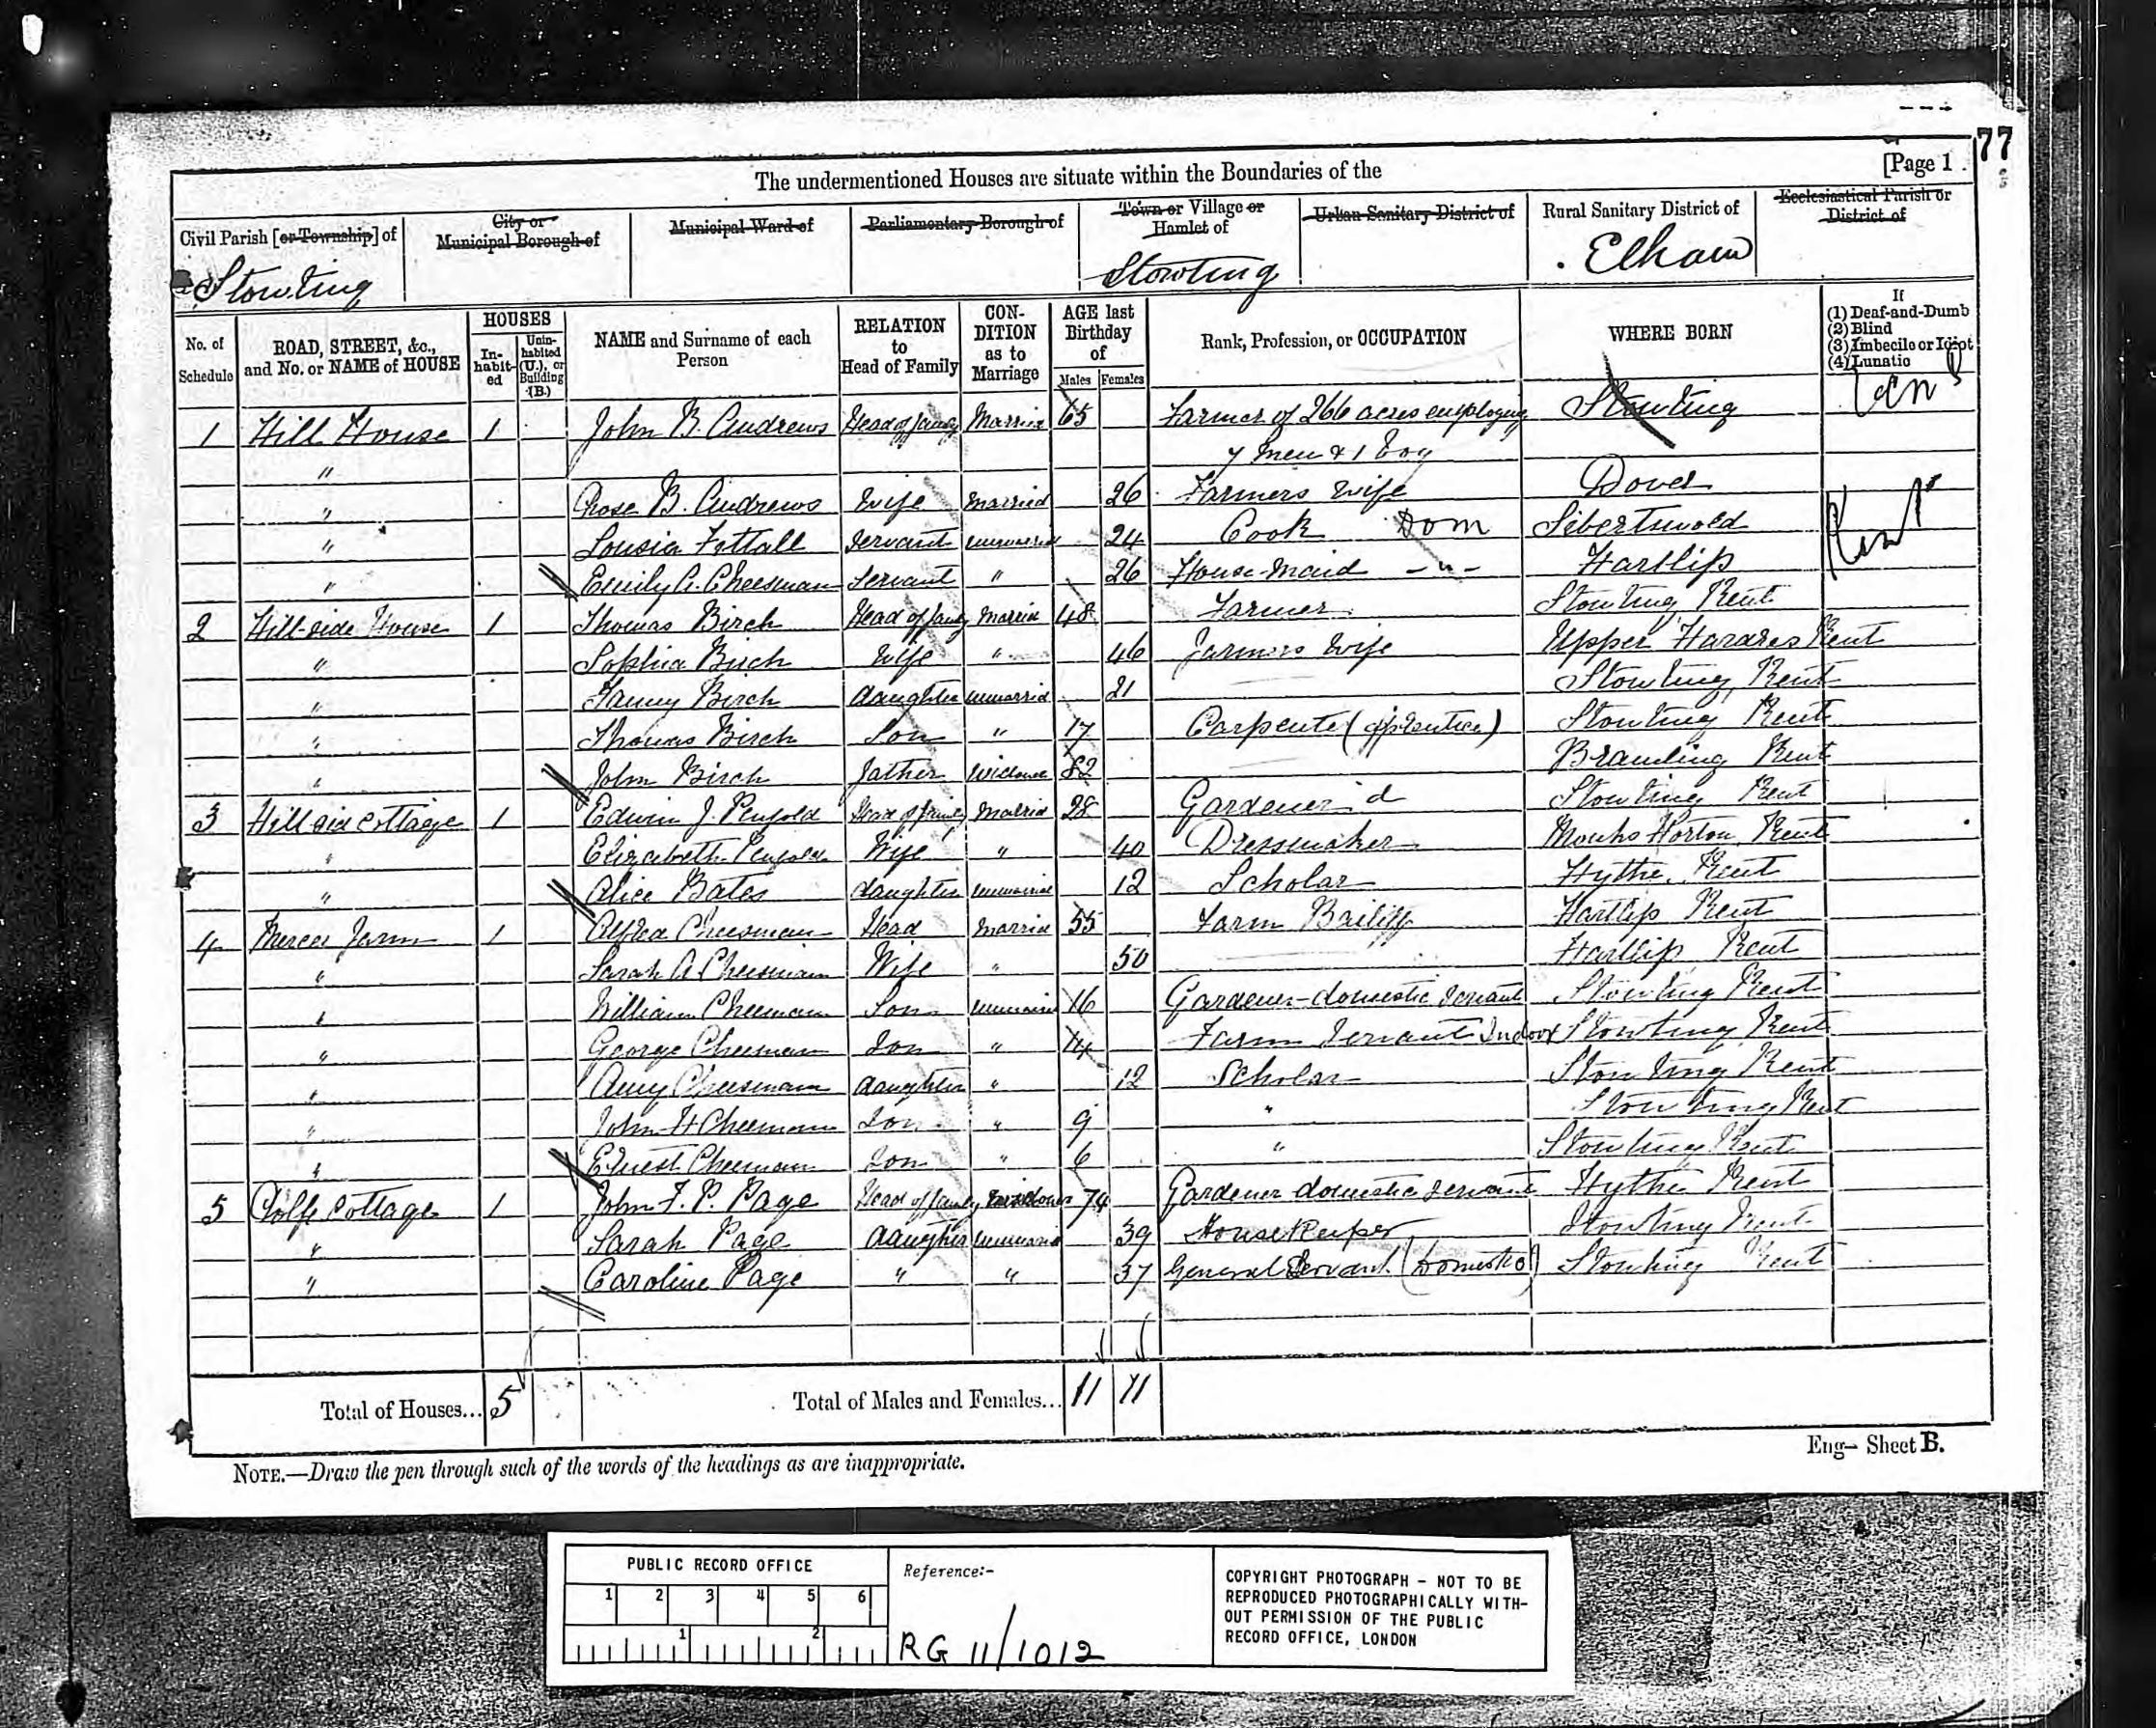 77
[Page 1.
The undermentioned Houses are situate within the Boundaries of the
Civil Parish [or Township] of | City or Municipal Borough of | Municipal Ward of | Parliamentary Borough of | Town or Village or Hamlet of | Urban Sanitary District of | Rural Sanitary District of | Ecclesiastical Parish or District of
Stowting | Stowting | Elham
No. of Schedule | ROAD, STREET, &c., and No. or NAME of HOUSE | HOUSES In-habit-ed | Unin-habited (U.), or Building (B.) | NAME and Surname of each Person | RELATION to Head of Family | CON-DITION as to Marriage | AGE last Birthday of Males | Females | Rank, Profession, or OCCUPATION | WHERE BORN | If (1) Deaf-and-Dumb (2) Blind (3) Imbecile or Idiot (4) Lunatic
1 Hill House 1 John B. Andrews Head of family Married 65 Farmer of 266 acres employing Stowting
" 7 Men & 1 Boy
" Rose B. Andrews Wife Married 26 Farmers Wife Dover
" Lousia Fittall Servant unmarried 24 Cook Dom Sibertswold Kent
" Emily A. Cheesman Servant " 26 House-Maid -"- Hartlip
2 Hill-side House 1 Thomas Birch Head of family Married 48 Farmer Stowting Kent
" Sophia Birch Wife " 46 Farmers Wife Upper Harares Kent
" Fanny Birch daughter unmarried 21 Stowting Kent
" Thomas Birch Son " 17 Carpenter (apprentice) Stowting Kent
" John Birch father Widower 82 Kent
3 Hill sid Cottage 1 Edwin J. Penfold Head of family Married 28 Gardener d Stowting Kent
" Elizabeth Penfold Wife " 40 Dressmaker Monks Horton Kent
" Alice Bates daughter unmarried 12 Scholar Hythe Kent
4 Farm 1 Alfred Cheesman Head Married 55 Farm Bailiff Hartlip Kent
" Sarah A Cheesman Wife " 50 Hartlip Kent
" William Cheesman Son unmarried 16 Gardener-domestic servant Stowting Kent
" George Cheesman Son " 14 Farm Servant Indoor Stowting Kent
" Amy Cheesman daughter " 12 Scholar Stowting Kent
" John H Cheesman Son " 9 " Stowting Kent
" Ernest Cheesman Son " 6 " Stowting Kent
5 Cottage 1 John F. P. Page Head of family Widower 74 Gardener domestic servant Hythe Kent
" Sarah Page daughter unmarried 39 Housekeeper Stowting Kent
" Caroline Page " " 37 General Servant (Domestic) Stowting Kent
Total of Houses... 5 Total of Males and Females... 11 11
Eng— Sheet B.
NOTE.—Draw the pen through such of the words of the headings as are inappropriate.
PUBLIC RECORD OFFICE
1 2 3 4 5 6
1 2
Reference:-
RG 11/1012
COPYRIGHT PHOTOGRAPH - NOT TO BE
REPRODUCED PHOTOGRAPHICALLY WITH-
OUT PERMISSION OF THE PUBLIC
RECORD OFFICE, LONDON